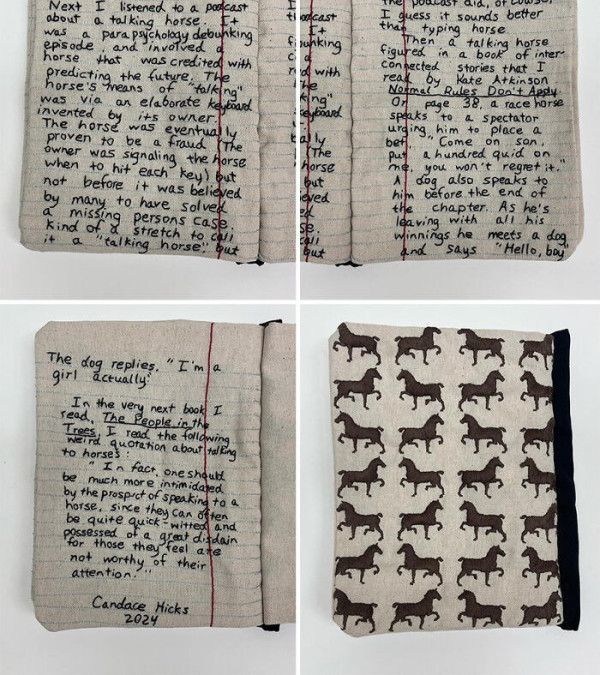 Next I listened to a podcast
about a talking horse. It
was a parapsychology debunking
episode, and involved a
horse that was credited with
predicting the future. The
horse's means of "talking"
was via an elaborate keyboard
invented by its owner.
The horse was eventually
proven to be a fraud (The
owner was signaling the horse
when to hit each key) but
not before it was believed
by many to have solved
a missing persons case.
Kind of a stretch to call
it a "talking horse" but
podcast
It
unking
with
The
king"
keyboard
ally
(The
horse
but
eved
ed
se.
call
but
the podcast did, of course.
I guess it sounds better
than typing horse
Then a talking horse
figured in a book of inter-
connected stories that I
read by Kate Atkinson
Normal Rules Don't Apply
On page 38, a race horse
speaks to a spectator
urging him to place a
bet. "Come on son,
put a hundred quid on
me, you won't regret it."
A dog also speaks to
him before the end of
the chapter. As he's
leaving with all his
winnings he meets a dog
and says "Hello, boy"
The dog replies, "I'm a
girl actually."
In the very next book I
read, The People in the
Trees, I read the following
weird quotation about talking
to horses:
"In fact, one should
be much more intimidated
by the prospect of speaking to a
horse, since they can often
be quite quick-witted and
possessed of a great disdain
for those they feel are
not worthy of their
attention."
Candace Hicks
2024